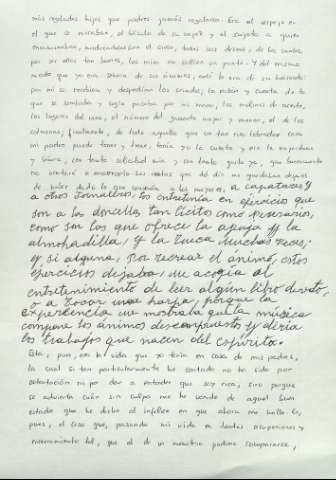 más regalados hijos que padres jamás regalaron. Era el espejo en
el que se miraban, el báculo de su vejez y el sujeto a quien
encaminaban, midiéndolos con el cielo, todos sus deseos, de los cuales,
por ser ellos tan buenos, los míos no salían un punto. Y del mismo
modo que yo era señora de sus ánimos, así lo era de su hacienda:
por mí se recibían y despedían los criados; la razón y cuenta de lo
que se sembraba y cogía pasaba por mi mano, los molinos de aceite,
los lagares del vino, el número del ganado mayor y menor, el de las
colmenas; finalmente, de todo aquello que un tan rico labrador como
mi padre puede tener y tiene, tenía yo la cuenta y era la mayordoma
y señora, con tanta solicitud mía y con tanto gusto suyo, que buenamente
no acertaré a encarecerlo. Los ratos que del día me quedaban después
de haber dado lo que convenía a los mayores, a capataces y
a otros jornaleros, los entretenía en ejercicios que
son a las doncellas tan lícitos como necesarios,
como son los que ofrece la aguja y la
almohadilla, y la rueca muchas veces;
y si alguna, por recrear el ánimo, estos
ejercicios dejaba, me acogía al
entretenimiento de leer algún libro devoto,
o a tocar una harpa, porque la
experiencia me mostraba que la música
compone los ánimos descompuestos y alivia
los trabajos que nacen del espíritu.
Esta, pues, era la vida que yo tenía en casa de mis padres,
la cual si tan particularmente he contado no ha sido por
ostentación ni por dar a entender que soy rica, sino porque
se advierta cuán sin culpa me he venido de aquel buen
estado que he dicho al infelice en que ahora me hallo. Es,
pues, el caso que, pasando mi vida en tantas ocupaciones y
encerramiento tal, que al de un monasterio pudiera compararse,